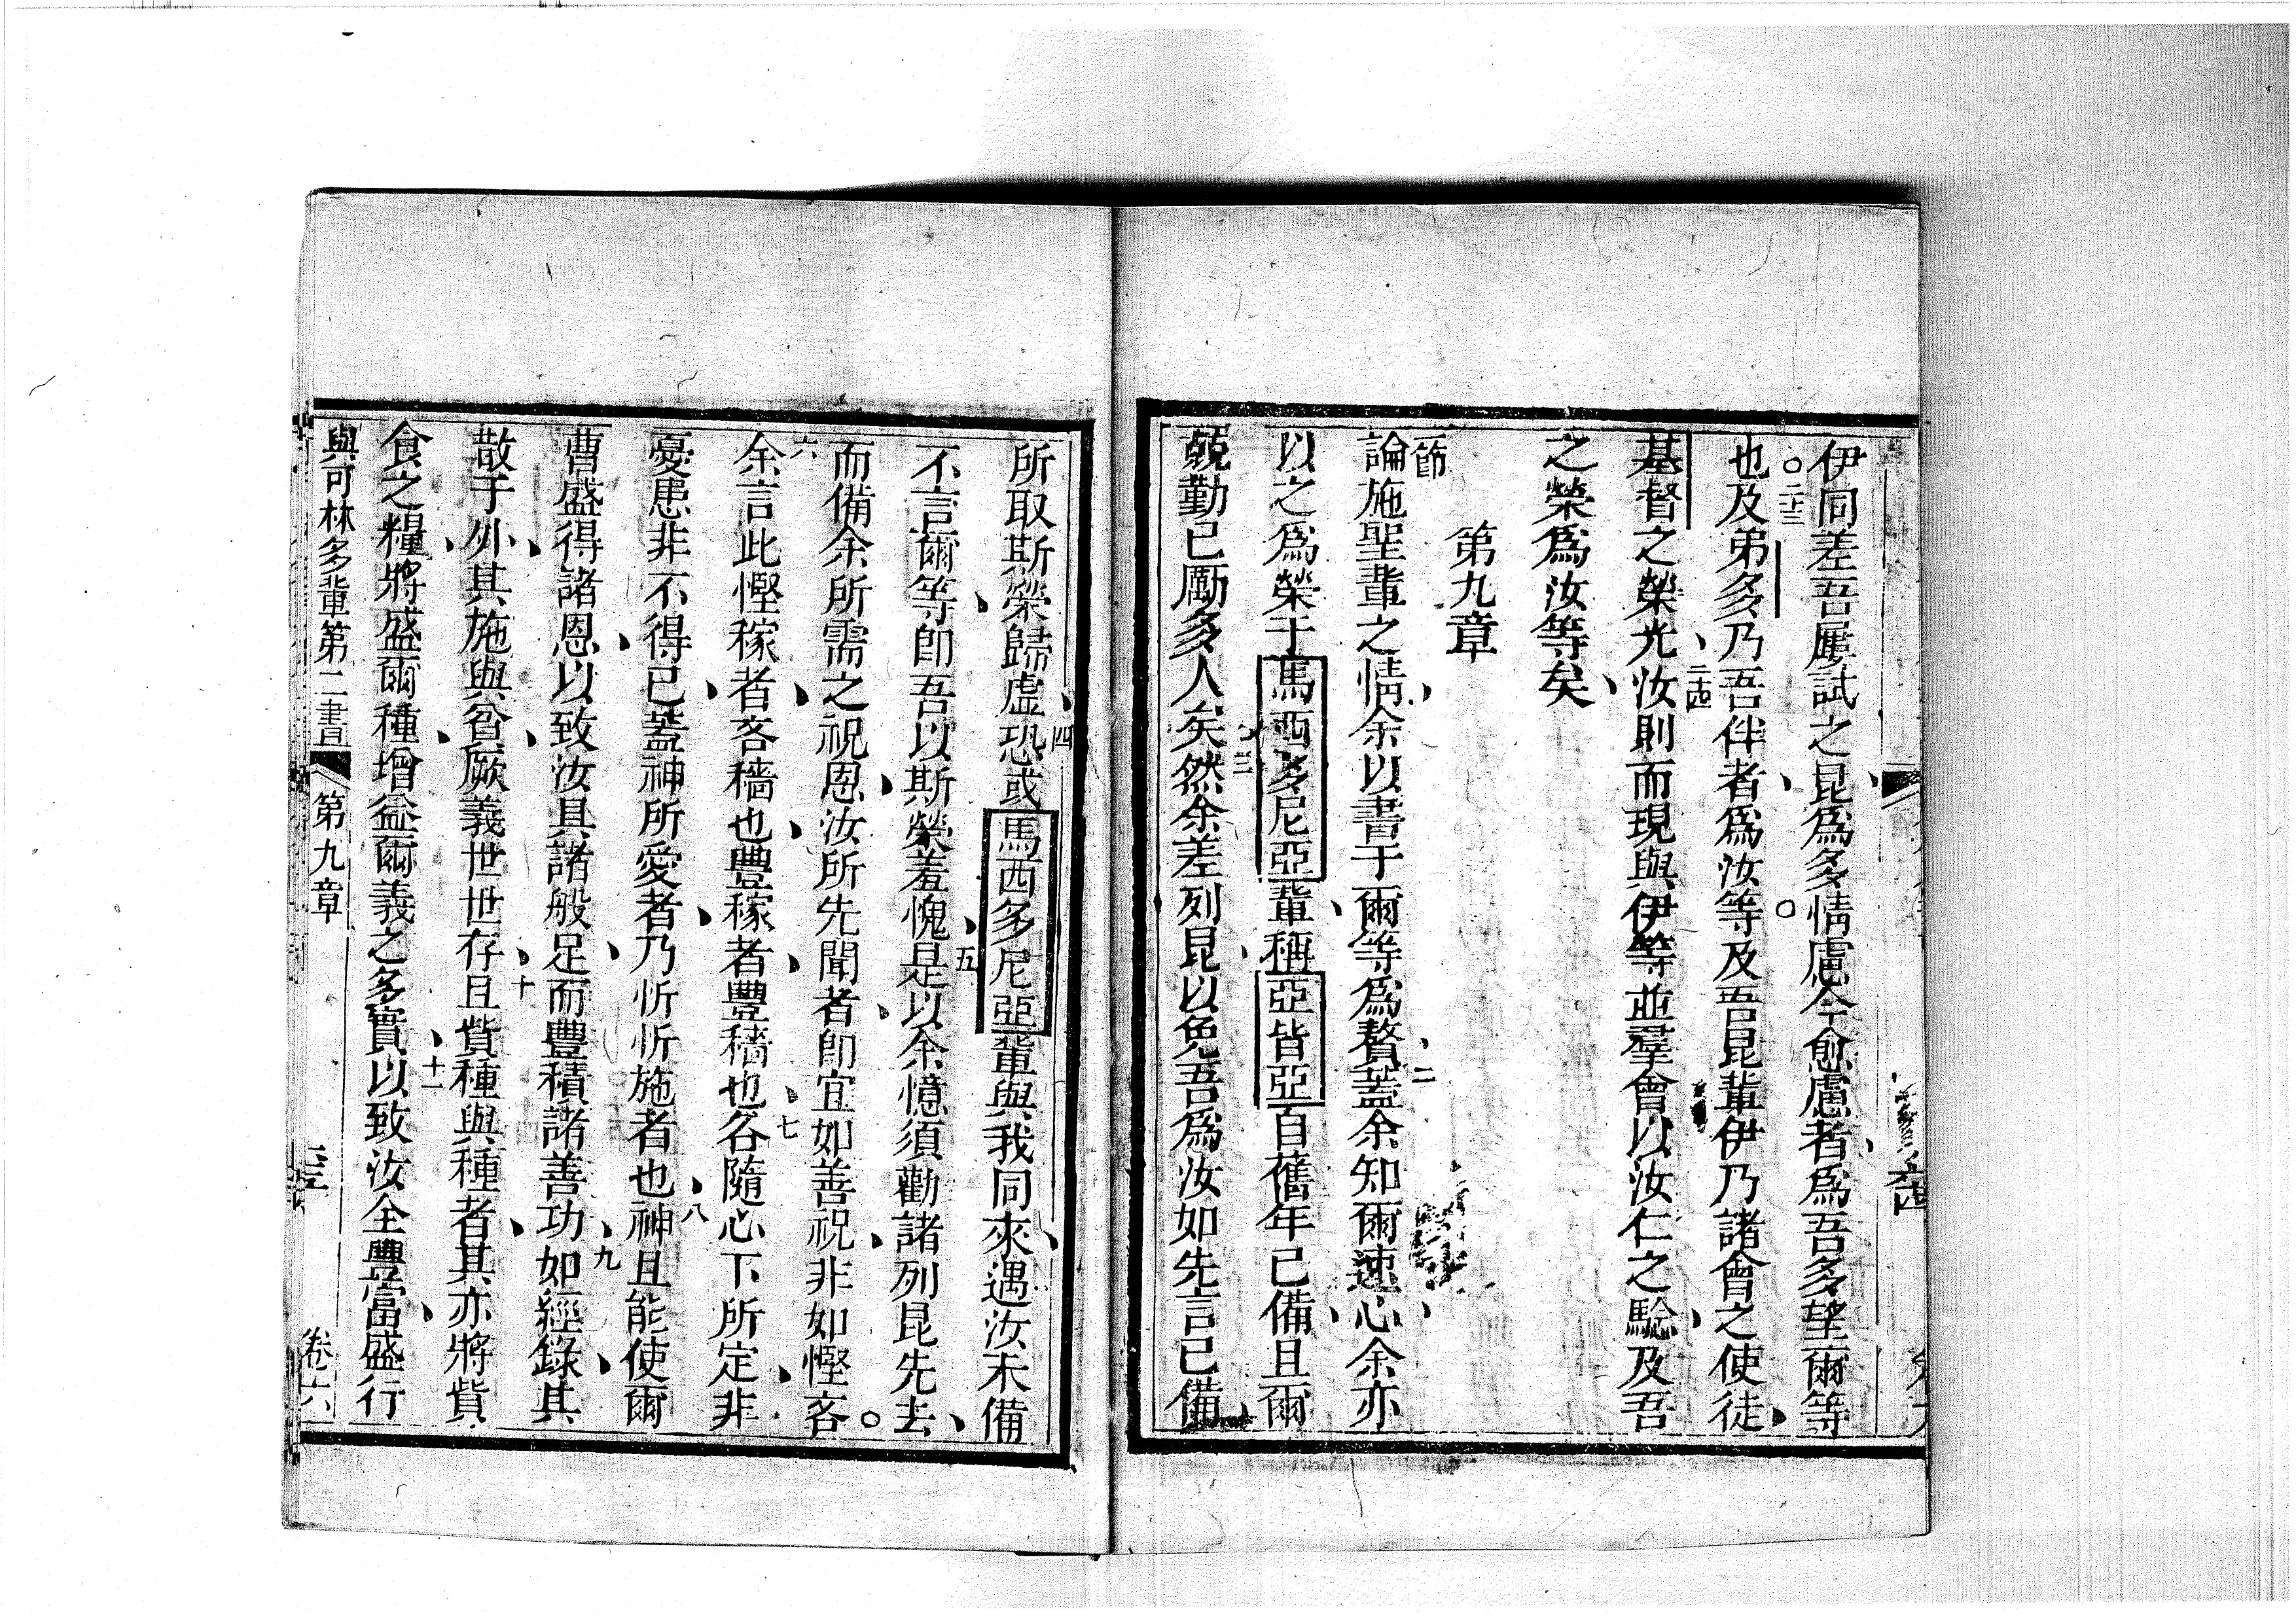 伊同差吾屢試之昆爲多情慮今愈慮者爲吾多望爾等
也○二十三及弟多乃吾伴者爲汝等○及吾昆輩伊乃諸會之使徒
基督之榮光二十四汝則而現與伊等並羣會以汝仁之驗及吾
之榮爲汝等矣
第九章
節論施聖輩之情余以書于爾等爲贅二蓋余知爾速心余亦
以之爲榮于馬西多尼亞輩稱亞皆亞自舊年已備且爾
兢勤已勵多人矣三然余差列昆以免吾爲汝如先言已備
所取斯榮歸虛四恐或馬西多尼亞輩與我同來遇汝未備
不言爾等卽吾以斯榮羞愧五是以余憶須勸諸列昆先去
而備余所需之祝恩汝所先聞者卽宜如善祝非如慳吝○
六余言此慳稼者吝穡也豐稼者豐穡也七各隨心下所定非
憂患非不得已蓋神所愛者乃忻忻施者也八神且能使爾
曹盛得諸恩以致汝具諸般足而豐積諸善功九如經錄其
散于外其施與貧厥義世世存十且貲種與種者其亦將貲
食之糧將盛爾種增益爾義之多實十一以致汝全豐富盛行
與可林多輩第二書 第九章 卷六